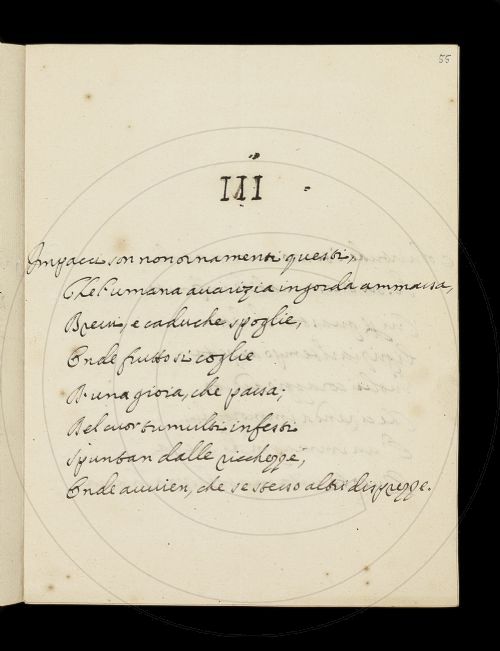 55
III
Impacci son non ornamenti questi,
Che l'umana auarizia ingorda ammassa,
Breui, e caduche spoglie,
Onde frutto si coglie
D'una gioia, che passa;
Del cuor tumulti infesti
Spuntan dalle ricchezze,
Onde auuien, che se stesso altri disprezze.